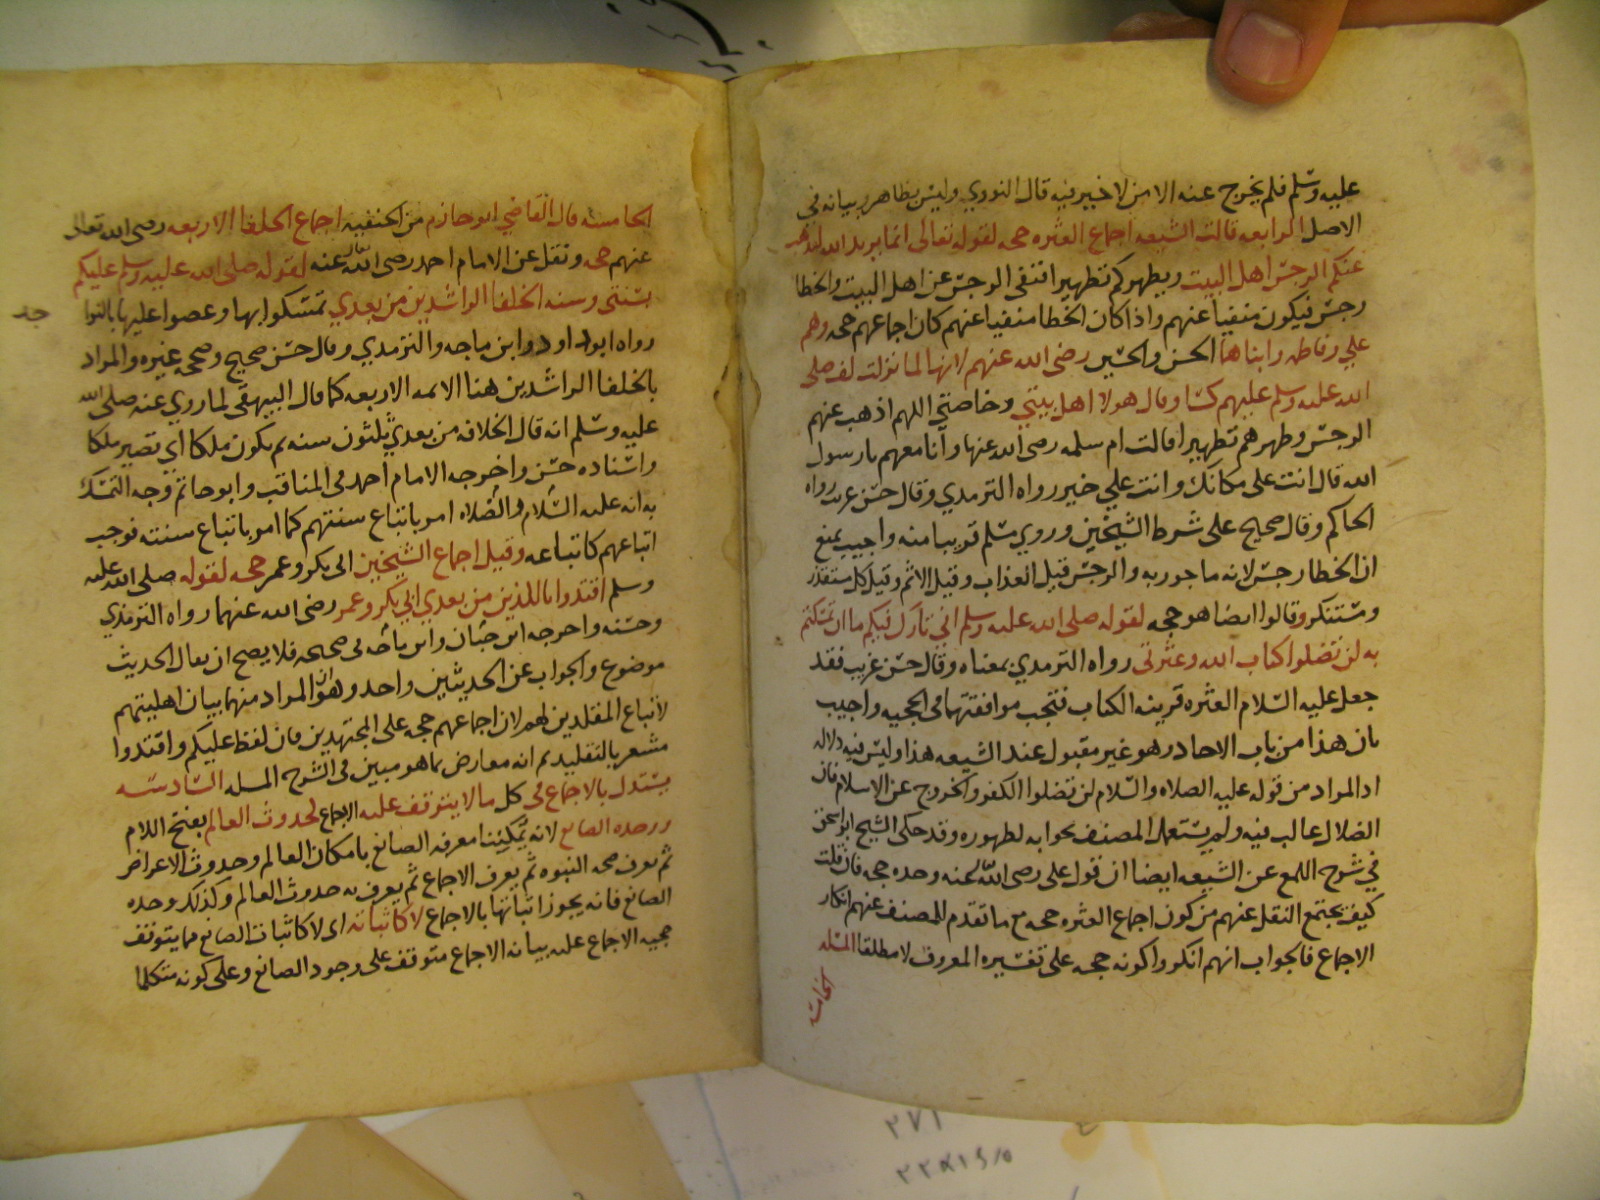 عليه وسلم فلم يخرج عنه الا من لا خير فيه قال النووي وليس بظاهر وبيانه في
الاصل الرابعه قالت الشيعه اجماع العتره حجه لقوله تعالى انما يريد الله ليذهب
عنكم الرجس اهل البيت ويطهركم تطهيرا انتفى الرجس عن اهل البيت والخطا
رجس فيكون منفيا عنهم واذا كان الخطا منفيا عنهم كان اجماعهم حجه وهم
علي وفاطمه وابناهما الحسن والحسين رضى الله عنهم لانها لما نزلت لف صلى
الله عليه وسلم عليهم كسا وقال هولا اهل بيتي وخاصتي اللهم اذهب عنهم
الرجس وطهرهم تطهيرا قالت ام سلمه رضى الله عنها وانا معهم يا رسول
الله قال انت على مكانك وانت علي خير رواه الترمدي وقال حسن غريب رواه
الحاكم وقال صحيح على شرط الشيخين وروي مسلم قريبا منه واجيب بمنع
ان الخطا رجس لانه ماجور به والرجس قيل العذاب وقيل الاثم وقيل كل مستقذر
ومستنكر وقالوا ايضا هو حجه لقوله صلى الله عليه وسلم اني تارك فيكم ما ان تمسكتم
به لن تضلوا كتاب الله وعترتى رواه الترمدي بمعناه وقال حسن غريب فقد
جعل عليه السلام العتره قرينه الكتاب فتجب موافقتهما في الحجيه واجيب
بان هذا من باب الاحاد وهو غير مقبول عند الشيعه هذا وليس فيه دلاله
اذ المراد من قوله عليه الصلاه والسلام لن تضلوا الكفر والخروج عن الاسلام فان
الضلال غالب فيه ولم يشتغل المصنف بجوابه لظهوره وقد حكى الشيخ ابو اسحق
في شرح اللمع عن الشيعه ايضا ان قول على رضى الله عنه وحده حجه فان قلت
كيف يجتمع النقل عنهم من كون اجماع العتره حجه مع ما تقدم للمصنف عنهم انكار
الاجماع فالجواب انهم انكروا كونه حجه على تفسيره المعروف لا مطلقا المسله
الخامسه
الخامسه قال القاضي ابو حازم من الحنفيه اجماع الخلفا الاربعه رضى الله تعالى
عنهم حجه ونقل عن الامام احمد رضى الله تعالى عنه لقوله صلى الله عليه وسلم عليكم
بسنتى وسنه الخلفا الراشدين من بعدي تمسكوا بها وعضوا عليها بالنوا
جذ
رواه ابو داود وابن ماجه والترمدي وقال حسن صحيح وصححه غيره والمراد
بالخلفا الراشدين هنا الايمه الاربعه كما قال البيهقى لما روي عنه صلى الله
عليه وسلم انه قال الخلافه من بعدي ثلثون سنه ثم يكون ملكا اي تصير ملكا
واسناده حسن واخرجه الامام احمد في المناقب وابو حاتم وجه التمسك
به انه عليه السلام والصلاه امر باتباع سنتهم كما امر باتباع سنته فوجب
اتباعهم كاتباعه وقيل اجماع الشيخين ابى بكر وعمر حجه لقوله صلى الله عليه
وسلم اقتدوا باللذين من بعدي ابي بكر وعمر رضى الله عنهما رواه الترمدي
وحسنه واخرجه ابن حبان وابن ماجه في صحيحه فلا يصح ان يقال الحديث
موضوع والجواب عن الحديثين واحد وهو ان المراد منهما بيان اهليتهم
لاتباع المقلدين لهم لان اجماعهم حجه على المجتهدين فان لفظ عليكم واقتدوا
مشعر بالتقليد ثم انه معارض بما هو مبين في الشرح المسله السادسه
يستدل بالاجماع في كل ما لا يتوقف عليه الاجماع لحدوث العالم بفتح اللام
ووحده الصانع لانه يمكننا معرفه الصانع بامكان العالم وحدوث الاعراض
ثم نعرف صحه النبوه ثم يعرف الاجماع ثم يعرف به حدوث العالم وكذلك وحده
الصانع فانه يجوز اثباتها بالاجماع لا كاثباته اى لا كاثبات الصانع مما يتوقف
حجيه الاجماع عليه بيانه الاجماع متوقف على وجود الصانع وعلى كونه متكلما
٢٧١